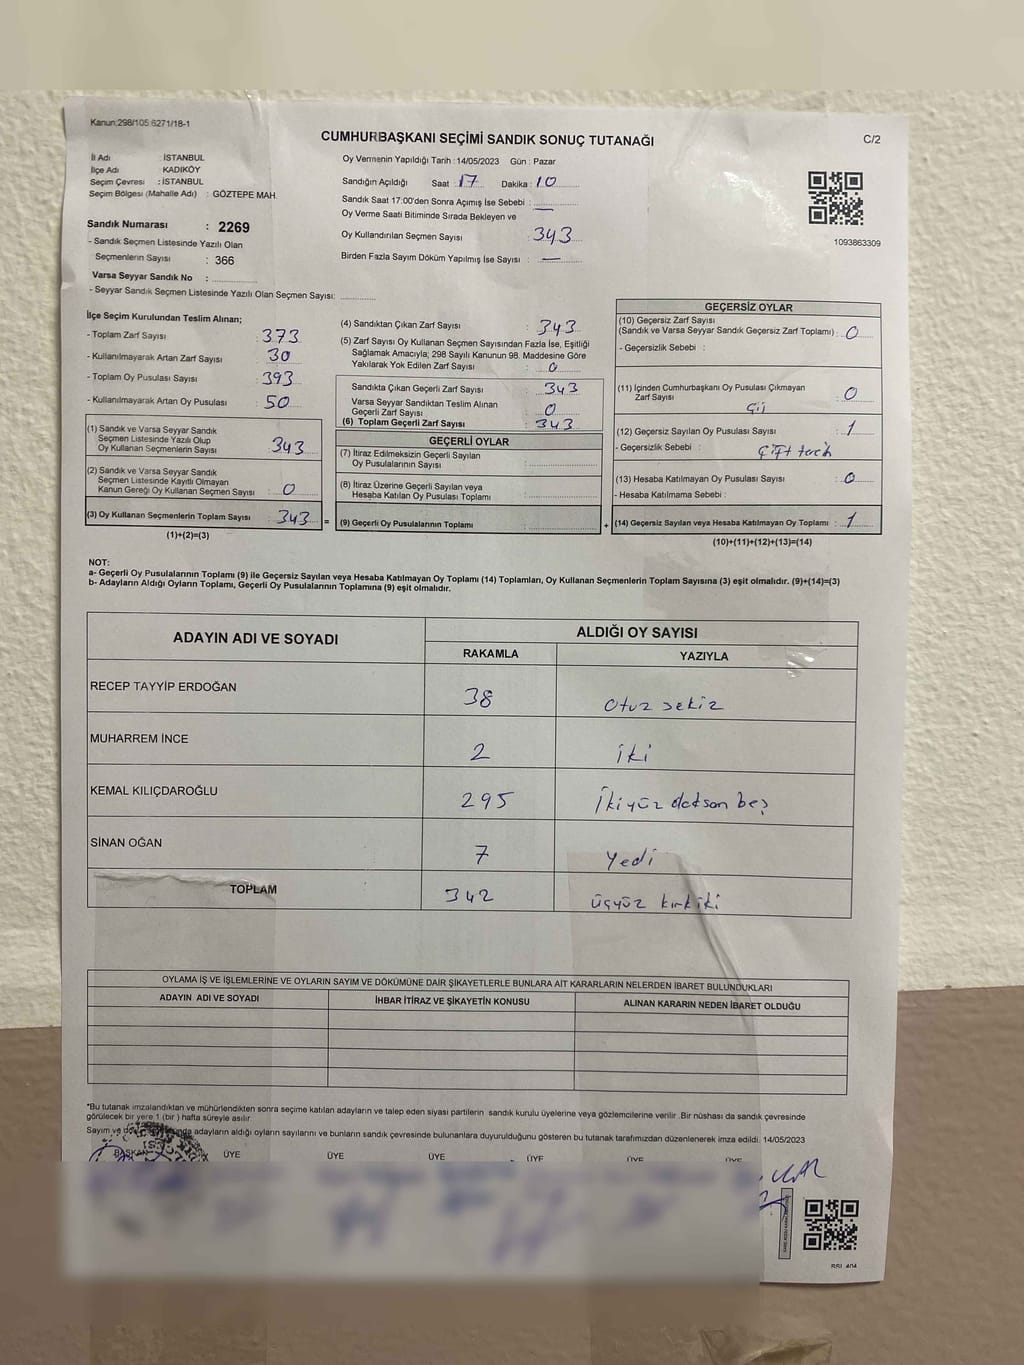 Kanun:298/105 6271/18-1
CUMHURBAŞKANI SEÇİMİ SANDIK SONUÇ TUTANAĞI
C/2
İl Adı : İSTANBUL
İlçe Adı : KADIKÖY
Seçim Çevresi : İSTANBUL
Seçim Bölgesi (Mahalle Adı) : GÖZTEPE MAH.
Oy Vermenin Yapıldığı Tarih : 14/05/2023 Gün : Pazar
Sandığın Açıldığı Saat : 17 Dakika : 10
Sandık Saat 17:00'den Sonra Açımış İse Sebebi : —
Oy Verme Saati Bitiminde Sırada Bekleyen ve
Oy Kullandırılan Seçmen Sayısı : 343
Birden Fazla Sayım Döküm Yapılmış İse Sayısı : —
1093863309
Sandık Numarası : 2269
- Sandık Seçmen Listesinde Yazılı Olan
Seçmenlerin Sayısı : 366
Varsa Seyyar Sandık No :
- Seyyar Sandık Seçmen Listesinde Yazılı Olan Seçmen Sayısı:
İlçe Seçim Kurulundan Teslim Alınan;
- Toplam Zarf Sayısı : 373
- Kullanılmayarak Artan Zarf Sayısı : 30
- Toplam Oy Pusulası Sayısı : 393
- Kullanılmayarak Artan Oy Pusulası : 50
(1) Sandık ve Varsa Seyyar Sandık
Seçmen Listesinde Yazılı Olup
Oy Kullanan Seçmenlerin Sayısı : 343
(2) Sandık ve Varsa Seyyar Sandık
Seçmen Listesinde Kayıtlı Olmayan
Kanun Gereği Oy Kullanan Seçmen Sayısı : 0
(3) Oy Kullanan Seçmenlerin Toplam Sayısı : 343
(1)+(2)=(3)
=
(4) Sandıktan Çıkan Zarf Sayısı : 343
(5) Zarf Sayısı Oy Kullanan Seçmen Sayısından Fazla İse, Eşitliği
Sağlamak Amacıyla; 298 Sayılı Kanunun 98. Maddesine Göre
Yakılarak Yok Edilen Zarf Sayısı : 0
Sandıkta Çıkan Geçerli Zarf Sayısı : 343
Varsa Seyyar Sandıktan Teslim Alınan
Geçerli Zarf Sayısı : 0
(6) Toplam Geçerli Zarf Sayısı : 343
GEÇERLİ OYLAR
(7) İtiraz Edilmeksizin Geçerli Sayılan
Oy Pusulalarının Sayısı :
(8) İtiraz Üzerine Geçerli Sayılan veya
Hesaba Katılan Oy Pusulası Toplamı :
(9) Geçerli Oy Pusulalarının Toplamı :
+
GEÇERSİZ OYLAR
(10) Geçersiz Zarf Sayısı
(Sandık ve Varsa Seyyar Sandık Geçersiz Zarf Toplamı) : 0
- Geçersizlik Sebebi :
(11) İçinden Cumhurbaşkanı Oy Pusulası Çıkmayan
Zarf Sayısı : 0
(12) Geçersiz Sayılan Oy Pusulası Sayısı : 1
- Geçersizlik Sebebi : Çift tercih
(13) Hesaba Katılmayan Oy Pusulası Sayısı : 0
- Hesaba Katılmama Sebebi :
(14) Geçersiz Sayılan veya Hesaba Katılmayan Oy Toplamı : 1
(10)+(11)+(12)+(13)=(14)
NOT:
a- Geçerli Oy Pusulalarının Toplamı (9) ile Geçersiz Sayılan veya Hesaba Katılmayan Oy Toplamı (14) Toplamları, Oy Kullanan Seçmenlerin Toplam Sayısına (3) eşit olmalıdır. (9)+(14)=(3)
b- Adayların Aldığı Oyların Toplamı, Geçerli Oy Pusulalarının Toplamına (9) eşit olmalıdır.
ADAYIN ADI VE SOYADI
ALDIĞI OY SAYISI
RAKAMLA YAZIYLA
RECEP TAYYİP ERDOĞAN 38 Otuz sekiz
MUHARREM İNCE 2 iki
KEMAL KILIÇDAROĞLU 295 İkiyüz doksan beş
SİNAN OĞAN 7 Yedi
TOPLAM 342 üçyüz kırkiki
OYLAMA İŞ VE İŞLEMLERİNE VE OYLARIN SAYIM VE DÖKÜMÜNE DAİR ŞİKAYETLERLE BUNLARA AİT KARARLARIN NELERDEN İBARET BULUNDUKLARI
ADAYIN ADI VE SOYADI İHBAR İTİRAZ VE ŞİKAYETİN KONUSU ALINAN KARARIN NEDEN İBARET OLDUĞU
*Bu tutanak imzalandıktan ve mühürlendikten sonra seçime katılan adayların ve talep eden siyasi partilerin sandık kurulu üyelerine veya gözlemcilerine verilir .Bir nüshası da sandık çevresinde
görülecek bir yere 1 (bir ) hafta süreyle asılır.
Sayım ve adayların aldığı oyların sayılarını ve bunların sandık çevresinde bulunanlara duyurulduğunu gösteren bu tutanak tarafımızdan düzenlenerek imza edildi. 14/05/2023
BAŞKAN ÜYE ÜYE ÜYE ÜYE ÜYE ÜYE